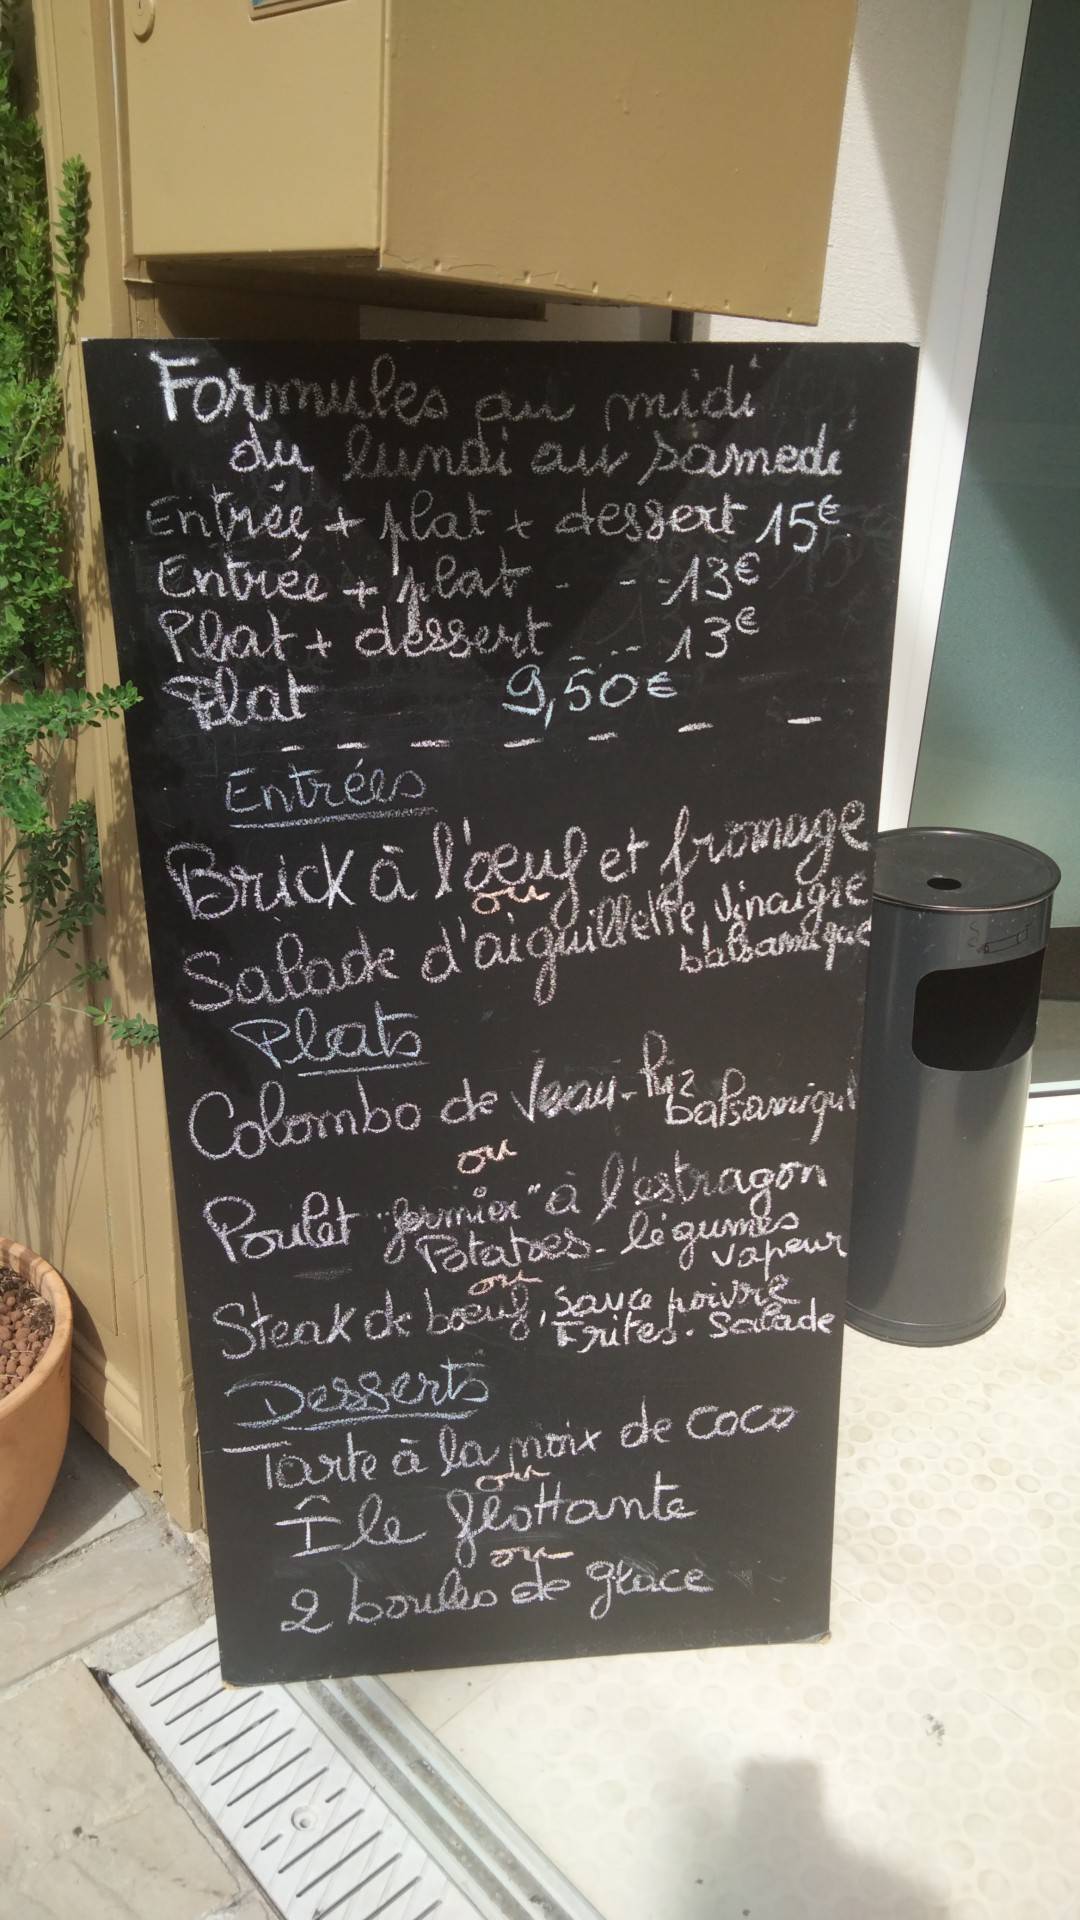 Formules au midi
du lundi au samedi
Entrée + plat + dessert 15€
Entrée + plat - - - 13€
Plat + dessert - - - 13€
Plat 9,50€
Entrées
Brick à l'oeuf et fromage
ou
Salade d'aiguillette, Vinaigre
balsamique
Plats
Colombo de Veau - Riz
balsamique
ou
Poulet "fermier" à l'estragon
Potatoes - légumes
vapeur
ou
Steak de boeuf, Sauce poivre
Frites - Salade
Desserts
Tarte à la noix de coco
ou
Île flottante
ou
2 boules de glace